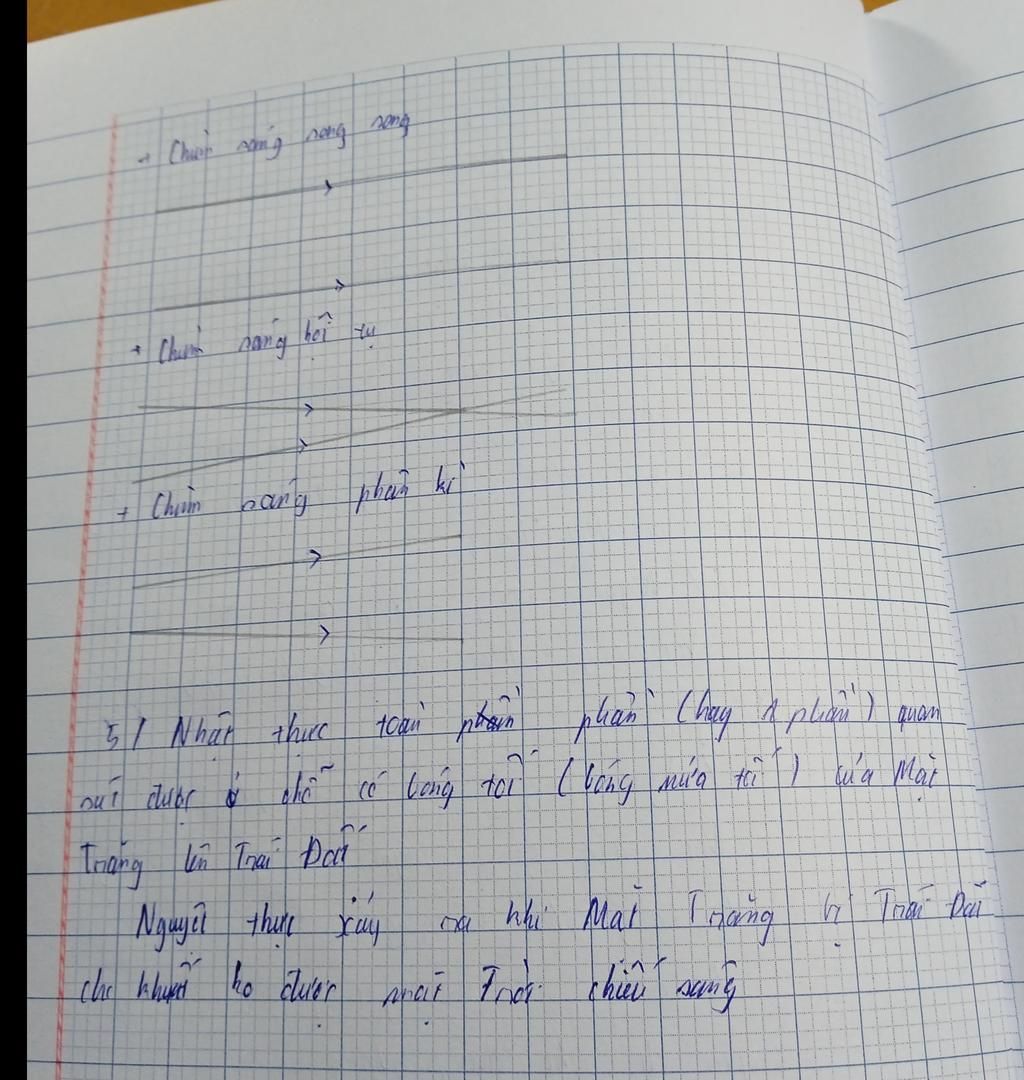 + Chùm sáng song song
+ Chùm sáng hội tụ
+ Chùm sáng phân kì
5/ Nhật thực toàn phần phần (hay 1 phần) quan
sát được ở chỗ có bóng tối (bóng nửa tối) của Mặt
Trăng lên Trái Đất
Nguyệt thực xảy ra khi Mặt Trăng bị Trái Đất
che khuất ko được mặt Trời chiếu sáng